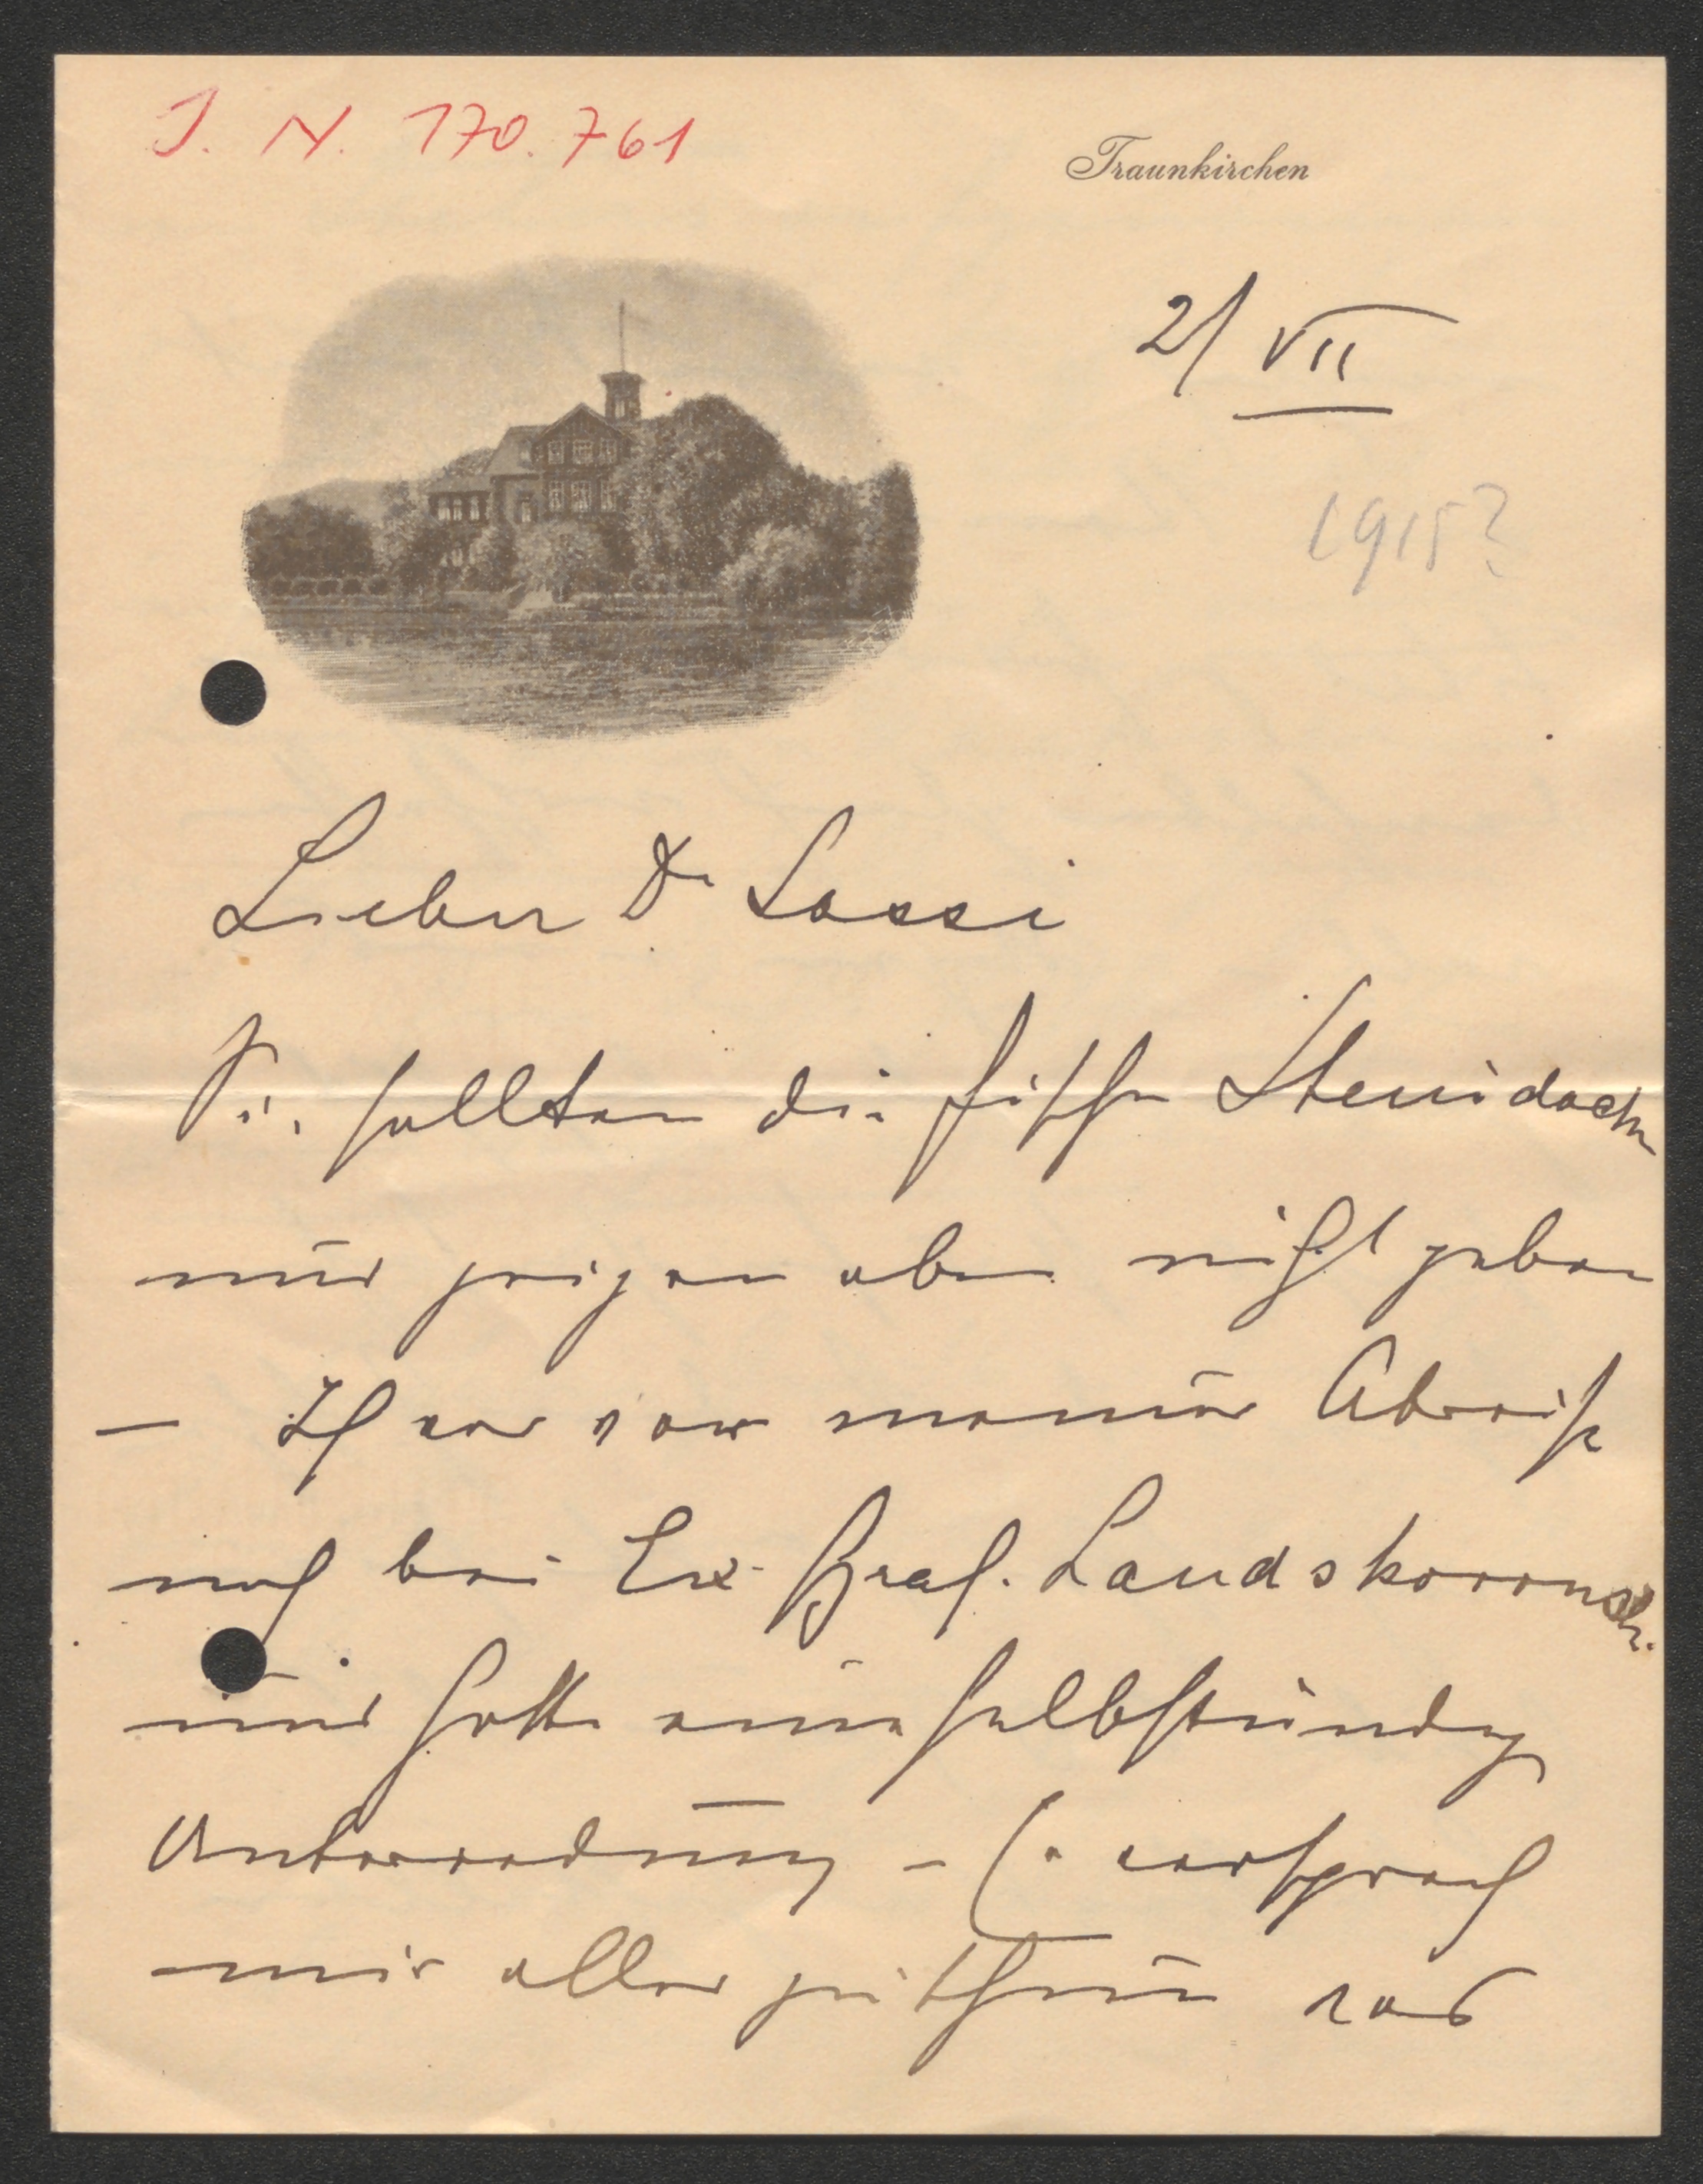 J. N. 170.761
Traunkirchen
2/VII
1915?
Lieber Dr Sassi
Sie sollten die Fische Steindach
nur zeigen aber nicht geben
– Ich war vor meiner Abreise
noch bei Ex. Graf. Landskoronsk.
und hatte eine halbstündig
Unterredung – E. versprach
mir alles zu thun was